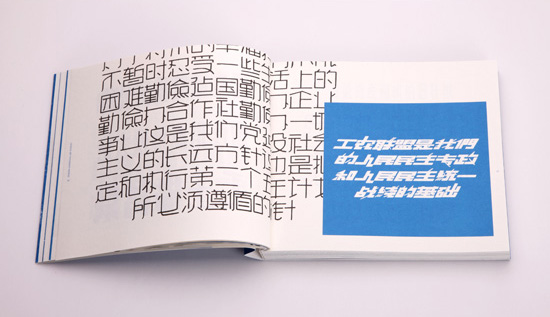 不暂时忍受一些生活上的
困难勤儉建国勤儉办企业
勤儉办合作社勤儉办一切
事业这是我们党建设社会
主义的长远方针这也是拟
定和执行第二个五年计划
所必须遵循的方针
工农联盟是我們
的人民民主专政
和人民民主統一
战綫的基础